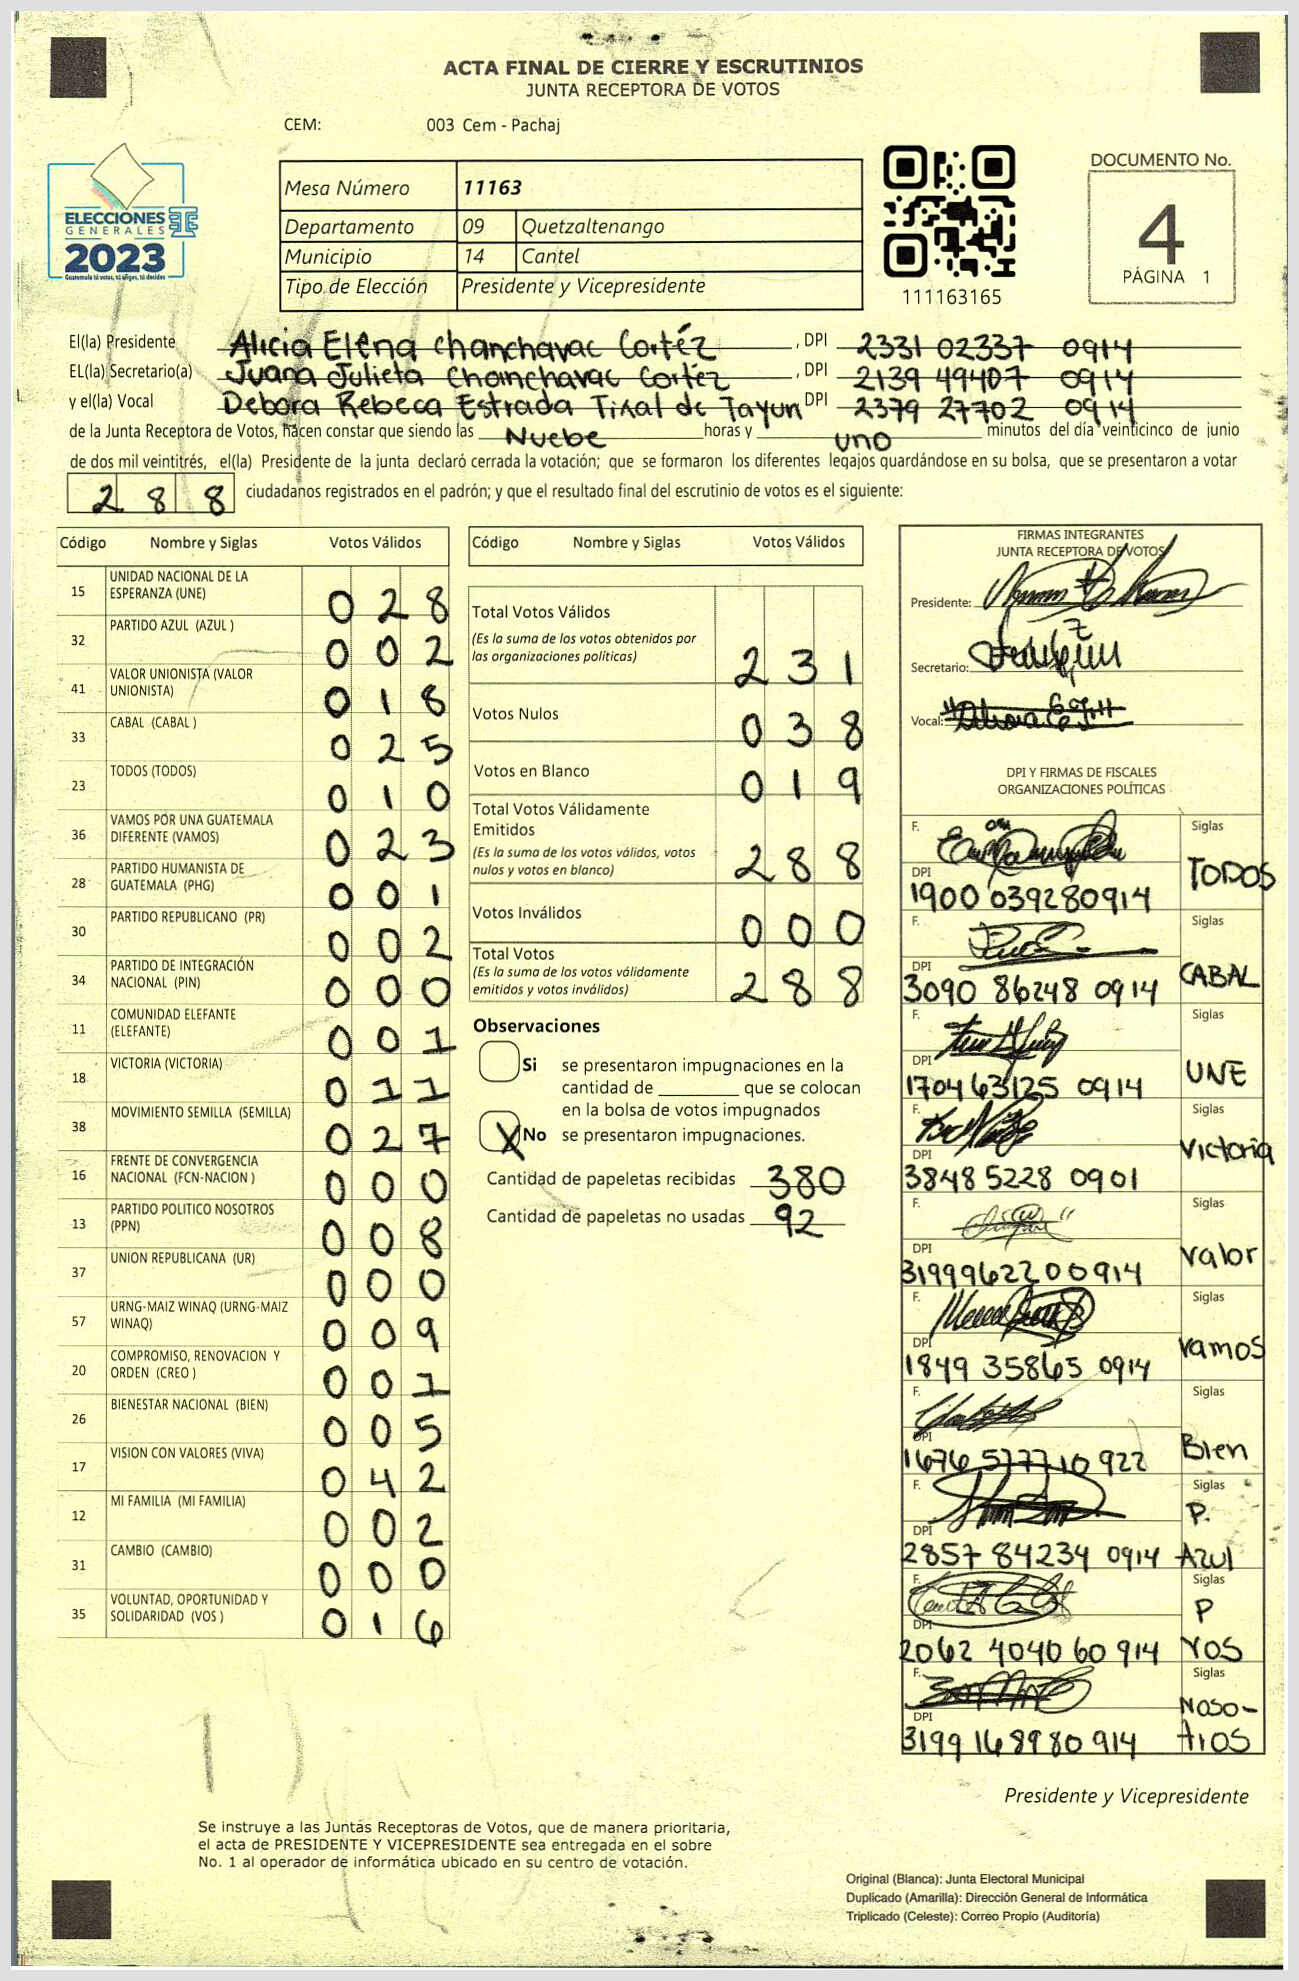 ACTA FINAL DE CIERRE Y ESCRUTINIOS
JUNTA RECEPTORA DE VOTOS
CEM: 003 Cem - Pachaj
ELECCIONES
GENERALES
2023
Guatemala tú votas, tú eliges, tú decides
Mesa Número 11163
Departamento 09 Quetzaltenango
Municipio 14 Cantel
Tipo de Elección Presidente y Vicepresidente
111163165
DOCUMENTO No.
4
PÁGINA 1
El(la) Presidente Alicia Elena Chanchavac Cortéz, DPI 2331 02337 0914
EL(la) Secretario(a) Juana Julieta Chanchavac Cortéz, DPI 2139 49407 0914
y el(la) Vocal Debora Rebeca Estrada Tixal de Tayun DPI 2379 27702 0914
de la Junta Receptora de Votos, hacen constar que siendo las Nuebe horas y uno minutos del día veinticinco de junio
de dos mil veintitrés, el(la) Presidente de la junta declaró cerrada la votación; que se formaron los diferentes legajos quardándose en su bolsa, que se presentaron a votar
288 ciudadanos registrados en el padrón; y que el resultado final del escrutinio de votos es el siguiente:
Código Nombre y Siglas Votos Válidos
15 UNIDAD NACIONAL DE LA
ESPERANZA (UNE) 028
32 PARTIDO AZUL (AZUL ) 002
41 VALOR UNIONISTA (VALOR
UNIONISTA) 018
33 CABAL (CABAL ) 025
23 TODOS (TODOS) 010
36 VAMOS POR UNA GUATEMALA
DIFERENTE (VAMOS) 023
28 PARTIDO HUMANISTA DE
GUATEMALA (PHG) 001
30 PARTIDO REPUBLICANO (PR) 002
34 PARTIDO DE INTEGRACIÓN
NACIONAL (PIN) 000
11 COMUNIDAD ELEFANTE
(ELEFANTE) 001
18 VICTORIA (VICTORIA) 011
38 MOVIMIENTO SEMILLA (SEMILLA) 027
16 FRENTE DE CONVERGENCIA
NACIONAL (FCN-NACION ) 000
13 PARTIDO POLITICO NOSOTROS
(PPN) 008
37 UNION REPUBLICANA (UR) 000
57 URNG-MAIZ WINAQ (URNG-MAIZ
WINAQ) 009
20 COMPROMISO, RENOVACION Y
ORDEN (CREO ) 001
26 BIENESTAR NACIONAL (BIEN) 005
17 VISION CON VALORES (VIVA) 042
12 MI FAMILIA (MI FAMILIA) 002
31 CAMBIO (CAMBIO) 000
35 VOLUNTAD, OPORTUNIDAD Y
SOLIDARIDAD (VOS ) 016
Código Nombre y Siglas Votos Válidos
Total Votos Válidos
(Es la suma de los votos obtenidos por
las organizaciones políticas) 231
Votos Nulos 038
Votos en Blanco 019
Total Votos Válidamente
Emitidos
(Es la suma de los votos válidos, votos
nulos y votos en blanco) 288
Votos Inválidos 000
Total Votos
(Es la suma de los votos válidamente
emitidos y votos inválidos) 288
Observaciones
Si se presentaron impugnaciones en la
cantidad de ________ que se colocan
en la bolsa de votos impugnados
X No se presentaron impugnaciones.
Cantidad de papeletas recibidas 380
Cantidad de papeletas no usadas 92
FIRMAS INTEGRANTES
JUNTA RECEPTORA DE VOTOS
Presidente:
Secretario:
Vocal:
DPI Y FIRMAS DE FISCALES
ORGANIZACIONES POLÍTICAS
F. Siglas
DPI TODOS
1900 039280914
F. Siglas
DPI CABAL
3090 86248 0914
F. Siglas
DPI UNE
1704 63125 0914
F. Siglas
DPI Victoria
3848 5228 0901
F. Siglas
DPI Valor
3199962200914
F. Siglas
DPI Vamos
1849 35865 0914
F. Siglas
DPI Bien
1676 577710922
F. Siglas
P.
DPI
2857 84234 0914 Azul
F. Siglas
P
DPI
2062 4040 60 914 VOS
F. Siglas
Noso-
DPI
3199 16 89 80 914 tros
Presidente y Vicepresidente
Se instruye a las Juntas Receptoras de Votos, que de manera prioritaria,
el acta de PRESIDENTE Y VICEPRESIDENTE sea entregada en el sobre
No. 1 al operador de informática ubicado en su centro de votación.
Original (Blanca): Junta Electoral Municipal
Duplicado (Amarilla): Dirección General de Informática
Triplicado (Celeste): Correo Propio (Auditoría)